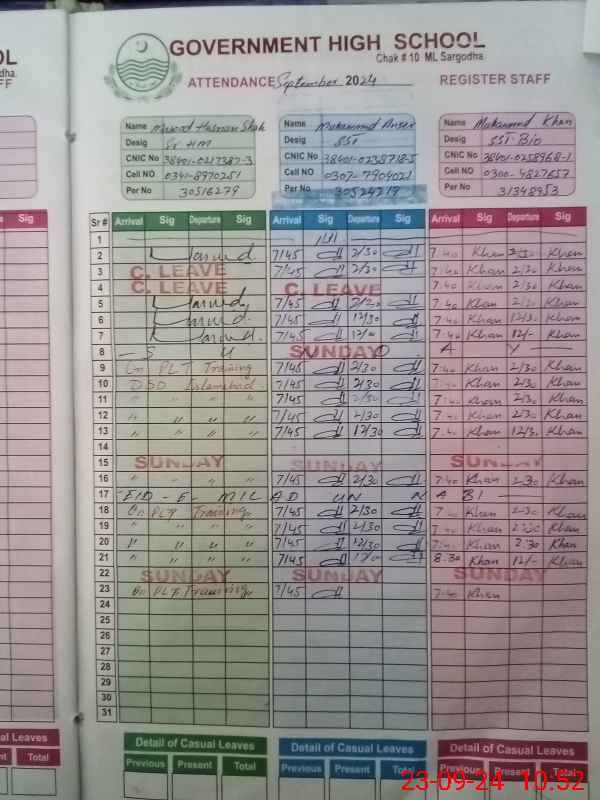 OL
GOVERNMENT HIGH SCHOOL
Chak # 10 ML Sargodha.
odha.
FF
ATTENDANCE September 2024 REGISTER STAFF
Name Masood Hasnain Shah Name Muhammad Name Muhammad Khan
Desig Sr HM Desig SST Desig SST-Bio
CNIC No 38401-0217387-3 CNIC No 38401-0238718-5 CNIC No 38401-0258968-1
Cell NO 0341-8970251 Cell NO 0307-7904021 Cell NO 0300-4827657
Per No 30516279 Per No 30524719 Per No 31348953
Sig Sr # Arrival Sig Departure Sig Arrival Sig Departure Sig Arrival Sig Departure Sig
1
2 7/45 2/30 7:40 Khan 2:30 Khan
3 C. LEAVE 7/45 2/30 7:40 Khan 2/30 Khan
4 C. LEAVE C. LEAVE 7:40 Khan 2/30 Khan
5 7/45 2/30 7:40 Khan 2/30 Khan
6 7/45 12/30 7:40 Khan 12/30 Khan
7 7/45 12/00 7:40 Khan 12/- Khan
8 S U SUNDAY N D A Y
9 On PLT Training 7/45 2/30 7:40 Khan 2/30 Khan
10 DSD Islamabad 7/45 2/30 7:40 Khan 2/30 Khan
11 " " " 7/45 2/30 7:40 Khan 2/30 Khan
12 " " " 7/45 2/30 7:40 Khan 2/30 Khan
13 " " " 7/45 12/30 7:40 Khan 12/30 Khan
14
15 SUNDAY SUNDAY SUNDAY
16 " " " 7/45 2/30 7:40 Khan 2:30 Khan
17 EID - E - MILAD UN NABI
18 On PLT Training 7/45 2/30 7:40 Khan 2:30 Khan
19 " " " 7/45 2/30 7:40 Khan 2:30 Khan
20 " " " 7/45 12/30 7:40 Khan 2:30 Khan
21 " " " 7/45 12/00 8:30 Khan 12/- Khan
22 SUNDAY SUNDAY SUNDAY
23 On PLT Training 7/45 7:40 Khan
24
25
26
27
28
29
30
31
al Leaves Detail of Casual Leaves Detail of Casual Leaves Detail of Casual Leaves
nt Total Previous Present Total Previous Present Total Previous Present Total
23-09-24 10:52